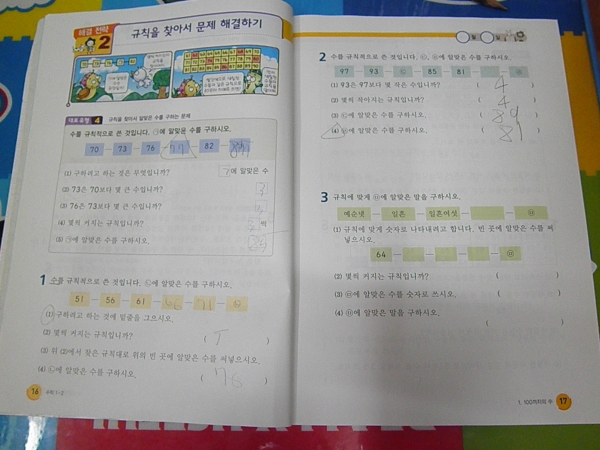 해결 전략
2
규칙을 찾아서 문제 해결하기
대표 유형 4 규칙을 찾아서 알맞은 수를 구하는 문제
수를 규칙적으로 쓴 것입니다. ㉠에 알맞은 수를 구하시오.
70 73 76 82
(1) 구하려고 하는 것은 무엇입니까? 에 알맞은 수
(2) 73은 70보다 몇 큰 수입니까? 3
(3) 76은 73보다 몇 큰 수입니까?
(4) 몇씩 커지는 규칙입니까? 씩
(5) ㉠에 알맞은 수를 구하시오.
1 수를 규칙적으로 쓴 것입니다. ㉡에 알맞은 수를 구하시오.
51 56 61 66 71 ㉡
(1) 구하려고 하는 것에 밑줄을 그으시오.
(2) 몇씩 커지는 규칙입니까? ( )
(3) 위 (2)에서 찾은 규칙대로 위의 빈 곳에 알맞은 수를 써넣으시오.
(4) ㉡에 알맞은 수를 구하시오. ( 76 )
16 수학 1-2
월 일
2 수를 규칙적으로 쓴 것입니다. ㉢, ㉣에 알맞은 수를 구하시오.
97 93 ㉢ 85 81 ㉣
(1) 93은 97보다 몇 작은 수입니까? ( 4 )
(2) 몇씩 작아지는 규칙입니까? ( 4 )
(3) ㉢에 알맞은 수를 구하시오. ( 89 )
(4) ㉣에 알맞은 수를 구하시오. ( )
3 규칙에 맞게 ㉤에 알맞은 말을 구하시오.
예순넷 일흔 일흔여섯 ㉤
(1) 규칙에 맞게 숫자로 나타내려고 합니다. 빈 곳에 알맞은 수를 써
넣으시오.
64 ㉤
(2) 몇씩 커지는 규칙입니까? ( )
(3) ㉤에 알맞은 수를 숫자로 쓰시오. ( )
(4) ㉤에 알맞은 말을 구하시오. ( )
1. 100까지의 수 17